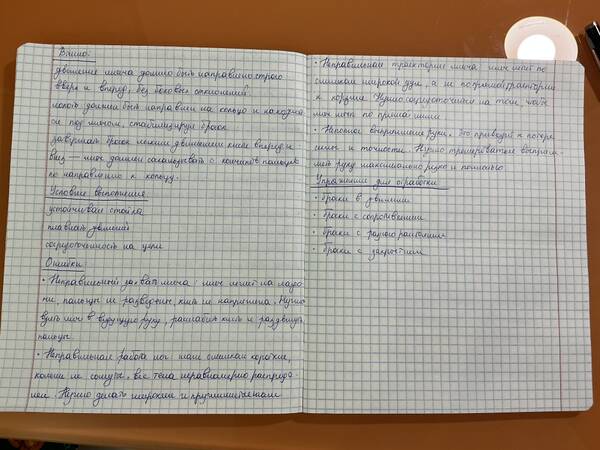 Важно:
движение мяча должно быть направлено строго
вверх и вперёд, без боковых отклонений
локоть должен быть направлен на кольцо и находится
ся под мячом, стабилизируя бросок
завершать бросок легким движением кисти вперед и
вниз — мяч должен соскальзывать с кончиков пальцев
по направлению к кольцу.
Условие выполнения:
устойчивая стойка
плавность движений
сосредоточенность на цели
Ошибки:
• Неправильный захват мяча: мяч лежит на ладо-
ни, пальцы не разведены, кисть не напряжена. Нужно
взять мяч в ведущую руку, расслабив кисть и раздвинув
пальцы.
• Неправильная работа ног: шаг слишком короткие,
колени не согнуты, вес тела неравномерно распреде-
лён. Нужно делать широкие и
• Неправильная траектория мяча: мяч летит по
слишком широкой дуге, а не по прямой траектории
к корзине. Нужно сосредоточиться на том, чтобы
мяч летел по прямой линии
• Неполное выпрямление руки. Это приводит к потере
силы и точности. Нужно тренироваться выпрям-
лять руку максимально резко и полностью
Упражнения для отработки:
• Броски в движении
• Броски с сопротивлением
• Броски с разного расстояния
• Броски с закрытием